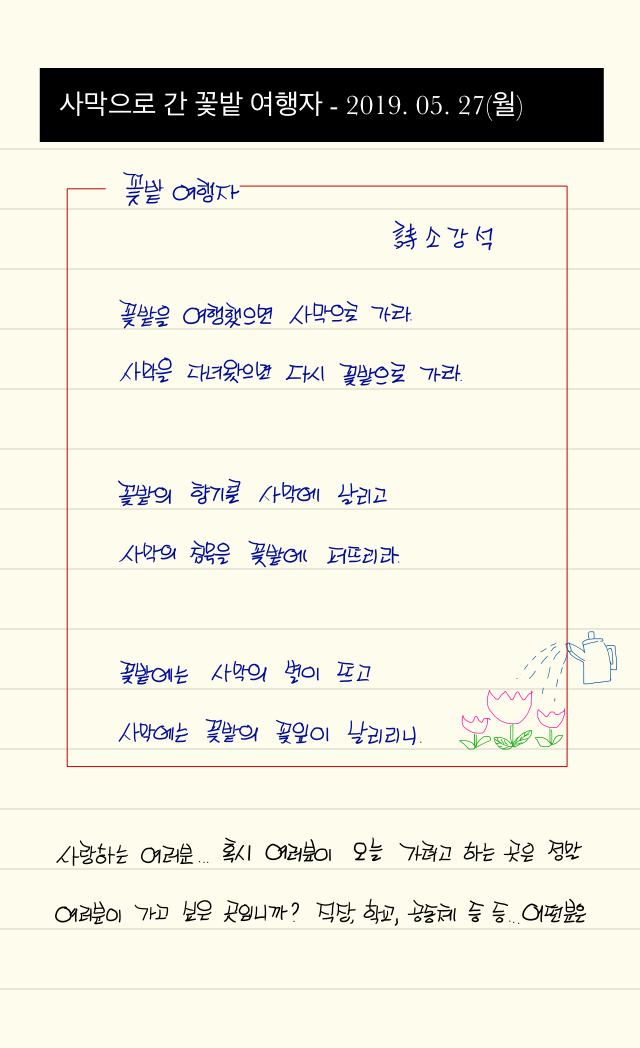 사막으로 간 꽃밭 여행자 - 2019. 05. 27(월)
꽃밭 여행자
詩 소강석
꽃밭을 여행했으면 사막으로 가라.
사막을 다녀왔으면 다시 꽃밭으로 가라.
꽃밭의 향기를 사막에 날리고
사막의 침묵을 꽃밭에 퍼뜨리라.
꽃밭에는 사막의 별이 뜨고
사막에는 꽃밭의 꽃잎이 날리리니.
사랑하는 여러분... 혹시 여러분이 오늘 가려고 하는 곳은 정말
여러분이 가고 싶은 곳입니까? 직장, 학교, 공동체 등 등...어떤분은